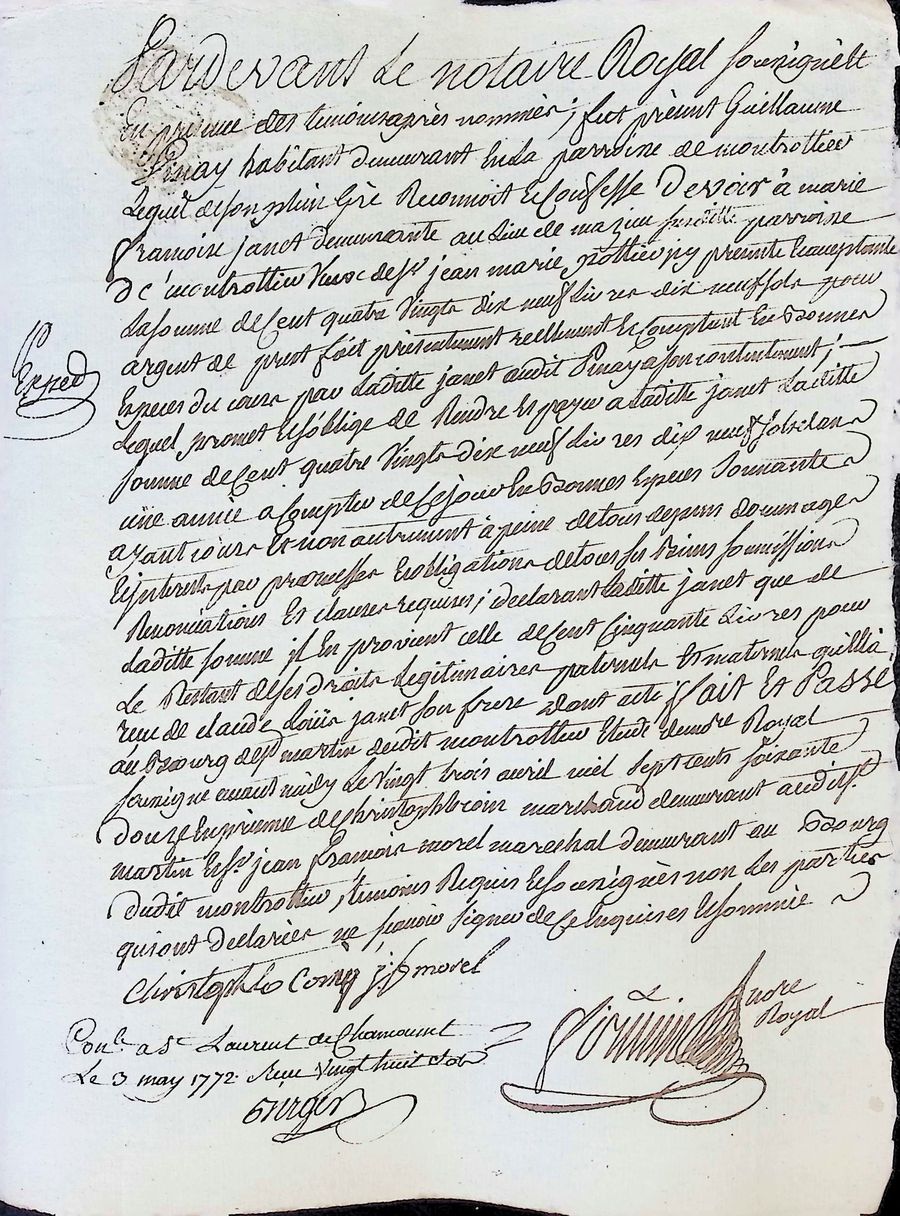 Pardevant Le notaire Royal sousignè Et
En présence des temoins après nommés; fut présent Guillaume
Pinay habitant demeurant En La parroisse de montrottier
Lequel de son plein Gré Reconnoit Et Confesse Devoir à marie
francoise janet demeurante au Lieu de mazieu susditte parroisse
De montrottier Veuve de Sr jean marie jcy presente Et acceptante
La somme de Cent quatre Vingts dix neuf Livres dix neuf sols pour
argent de prest fait présentement reellement Et Comptant En Bonnes
Especes du cours par Laditte janet audit Pinay a son contentement;
Lequel promet Et s'oblige de Rendre Et payer a Laditte janet Laditte
somme de Cent quatre Vingts dix neuf Livres dix neuf sols dans
une année a Compter de Ce jour En Bonnes Especes sonnantes
ayant cours Et non autrement à peine de tous depens dommages
Et jnterets par promesses Et obligations de tous ses biens soumissions
Renonciations Et clauses requises; declarant laditte janet que de
Laditte somme jl En provient celle de Cent Cinquante Livres pour
Le Restant de ses droits Legitimaires paternels Et maternels qu'elle à
reçu de claude Loüis janet son frere Dont acte ffait Et Passé
au Bourg de St martin de dit montrottier Etude de notre Royal
sousigne avant midy Le Vingt trois avril mil sept cents soixante
douze En présence de Christophle coin marchand demeurant audit St
martin Et Sr jean françois morel marechal demeurant au Bourg
dudit montrottier, temoins Requis Et sousignès non Les parties
qui ont declarées ne scavoir signer de Ce Enquises Et sommées
Christophle Coin j f morel
notre
Royal
Exped
Conlé a St Laurent de Chamousset
Le 3 may 1772 Reçu Vingt huit sols